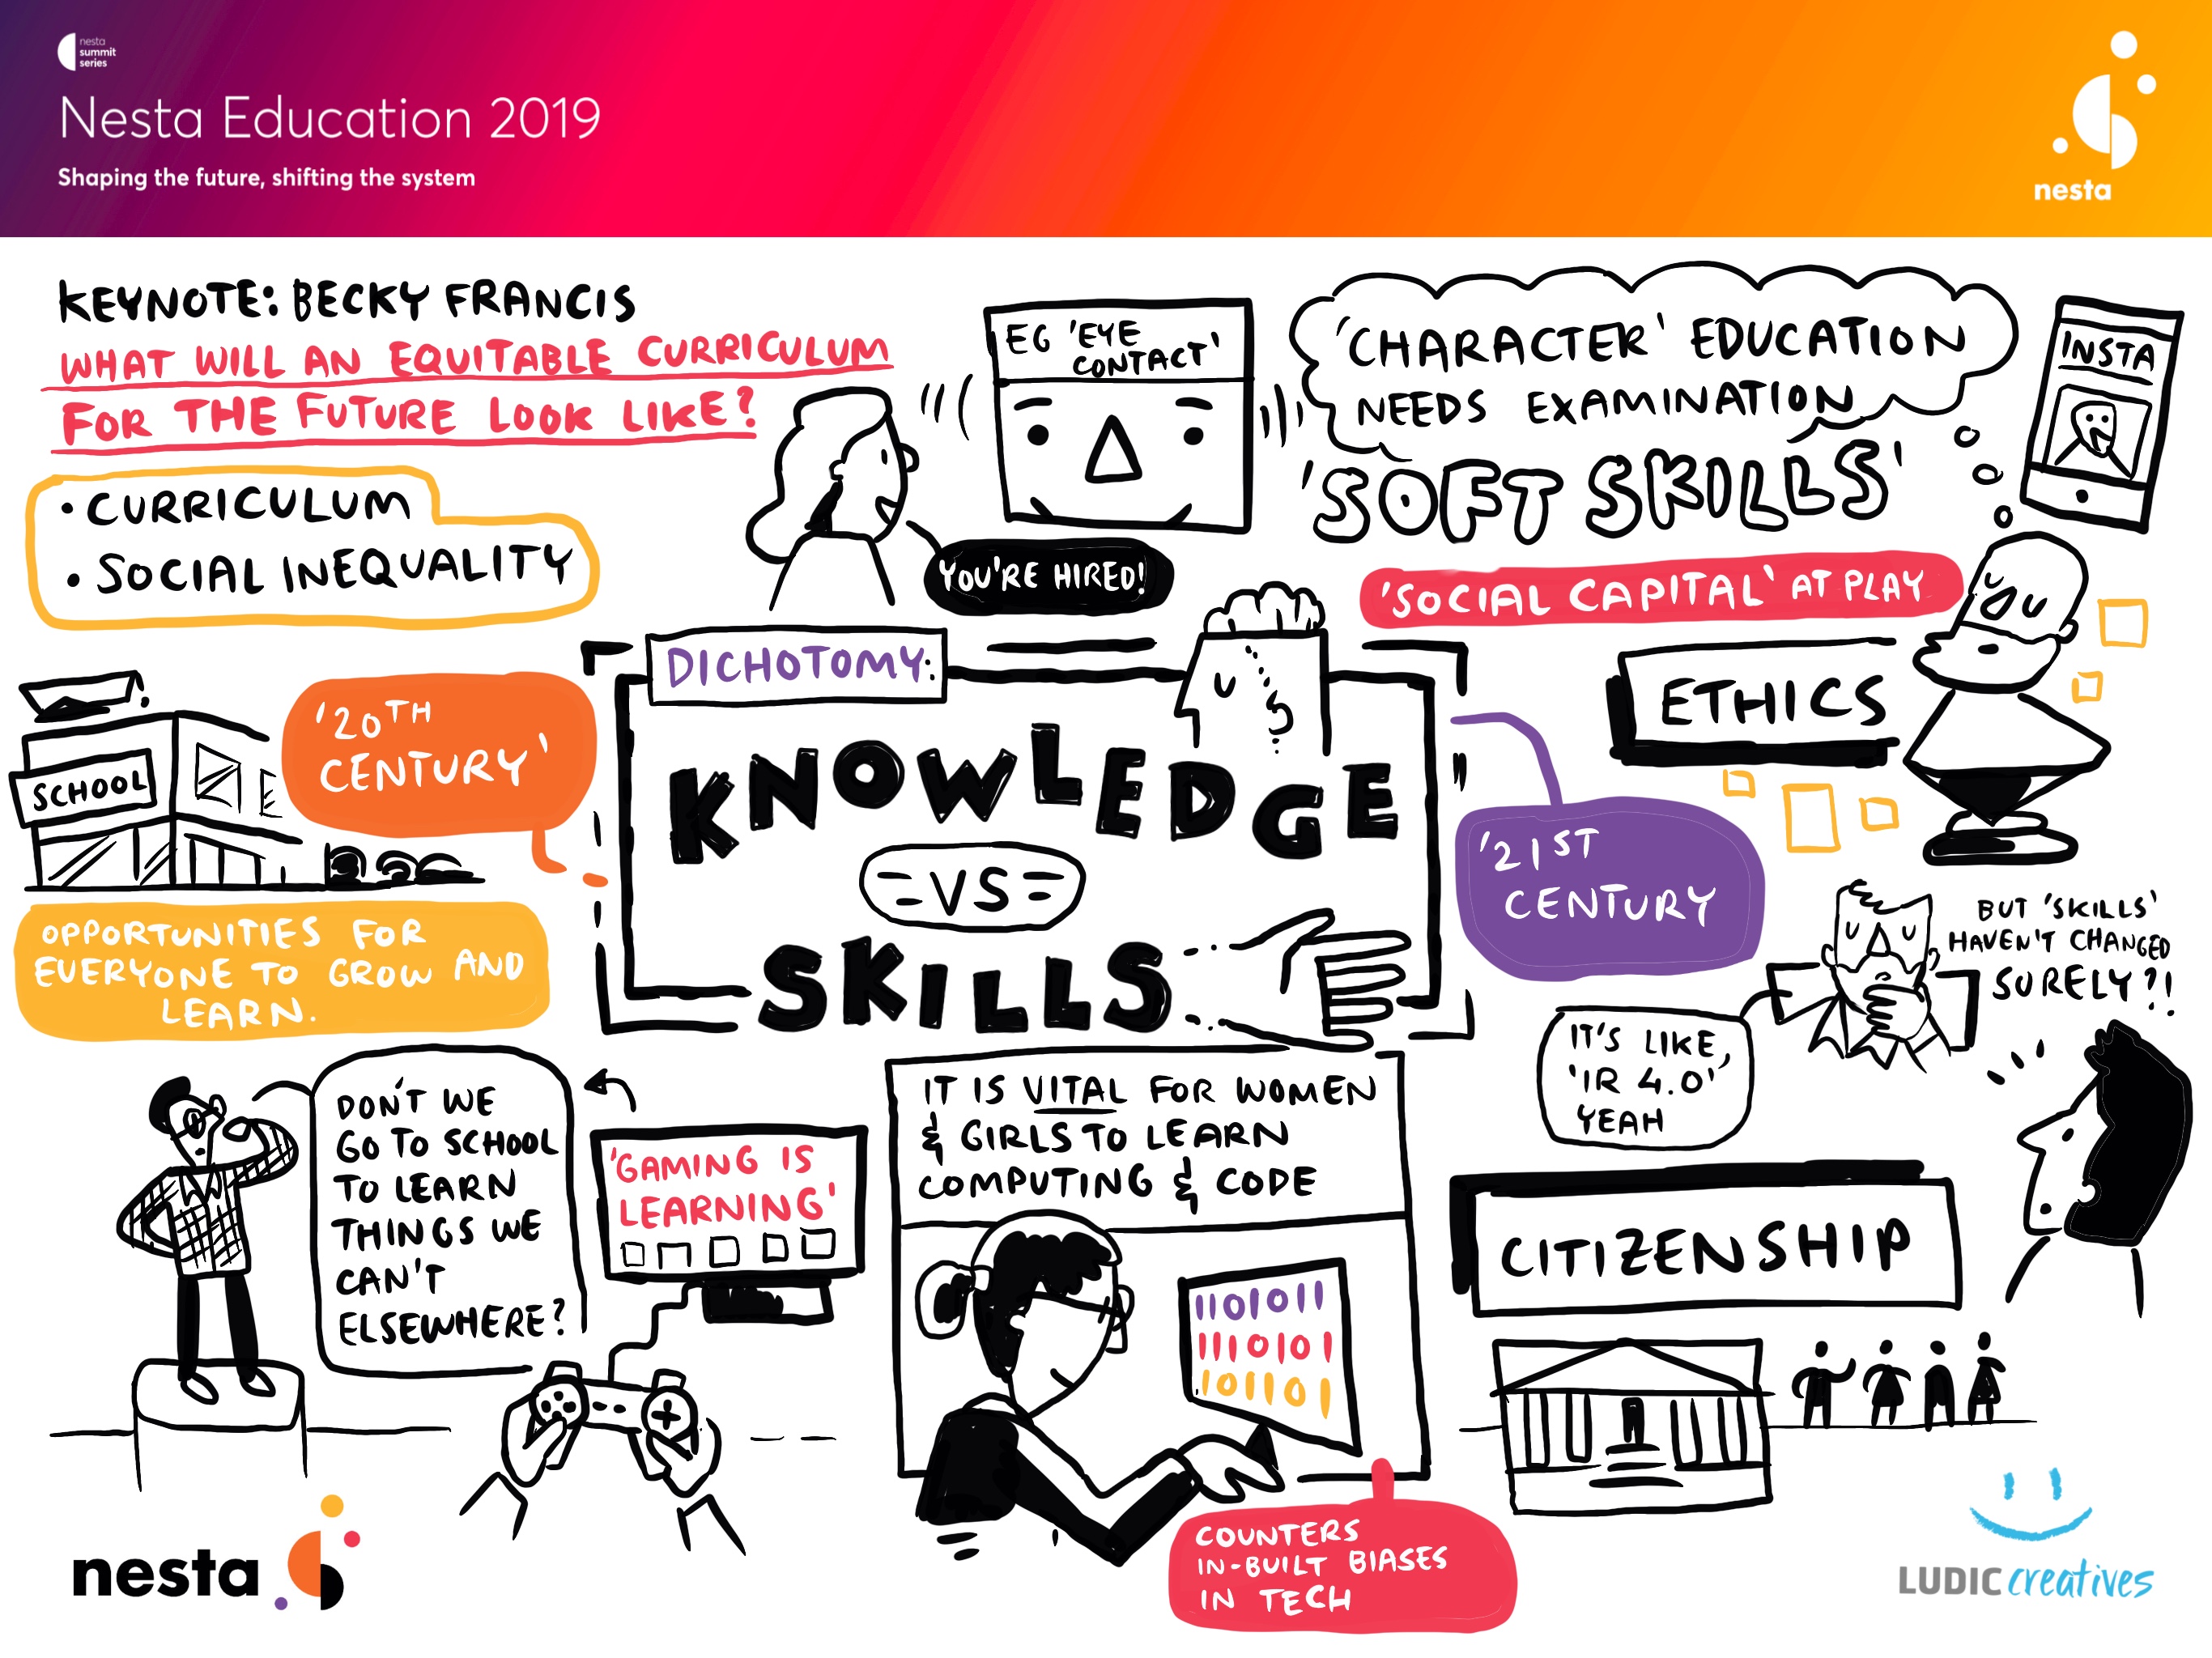 nesta
summit
series
Nesta Education 2019
Shaping the future, shifting the system
nesta
KEYNOTE: BECKY FRANCIS
WHAT WILL AN EQUITABLE CURRICULUM
FOR THE FUTURE LOOK LIKE?
• CURRICULUM
• SOCIAL INEQUALITY
EG 'EYE
CONTACT'
YOU'RE HIRED!
'CHARACTER' EDUCATION
NEEDS EXAMINATION
'SOFT SKILLS'
INSTA
'SOCIAL CAPITAL' AT PLAY
ETHICS
SCHOOL
'20TH
CENTURY'
OPPORTUNITIES FOR
EVERYONE TO GROW AND
LEARN.
DICHOTOMY:
KNOWLEDGE
VS
SKILLS
'21ST
CENTURY
BUT 'SKILLS'
HAVEN'T CHANGED
SURELY?!
IT'S LIKE,
'IR 4.0'
YEAH
DON'T WE
GO TO SCHOOL
TO LEARN
THINGS WE
CAN'T
ELSEWHERE?
'GAMING IS
LEARNING'
IT IS VITAL FOR WOMEN
& GIRLS TO LEARN
COMPUTING & CODE
1101011
1110101
101101
COUNTERS
IN-BUILT BIASES
IN TECH
CITIZENSHIP
nesta
LUDIC creatives